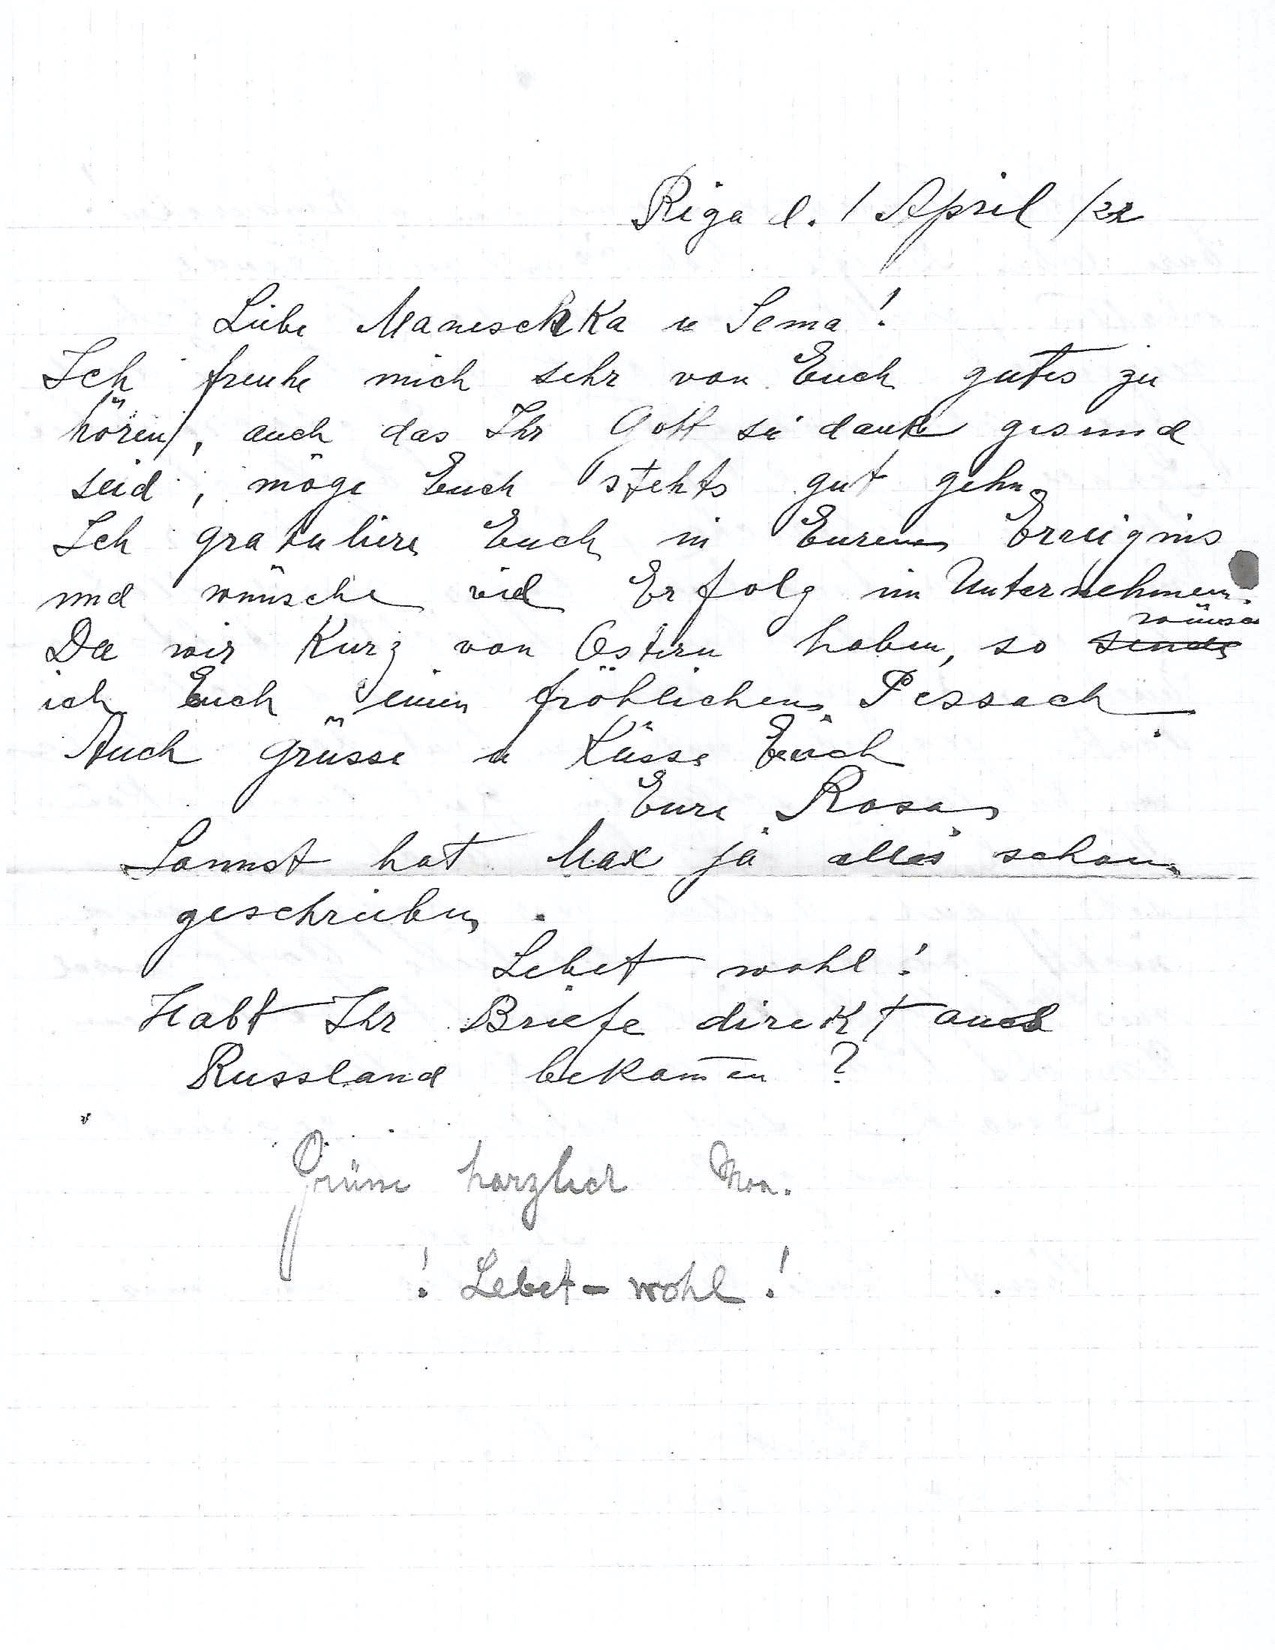 Riga d. 1 April /22
Liebe Maneschka u Sema!
Ich freuhe mich sehr von Euch gutes zu
hören, auch das Ihr Gott sei dank gesund
seid, möge Euch stehts gut gehn
Ich gratuliere Euch in Eurem Erreignis
und wünsche viel Erfolg im Unternehmen.
Da wir Kurz von Ostern haben, so sende
ich Euch einen fröhlichen Pessach
Auch Grüsse u Küsse Euch
Eure Rosa
Sonnst hat Max ja alles schon
geschrieben.
Lebet wohl!
Habt Ihr Briefe direkt aus
Russland bekom̄en?
herzlich
! Lebet-wohl!